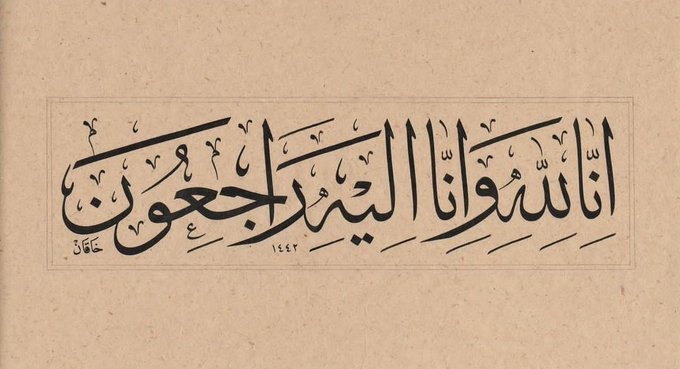 اِنَّا لِلّٰهِ وَاِنَّا اِلَيْهِ رَاجِعُونَ
١٤٤٢
خاقان